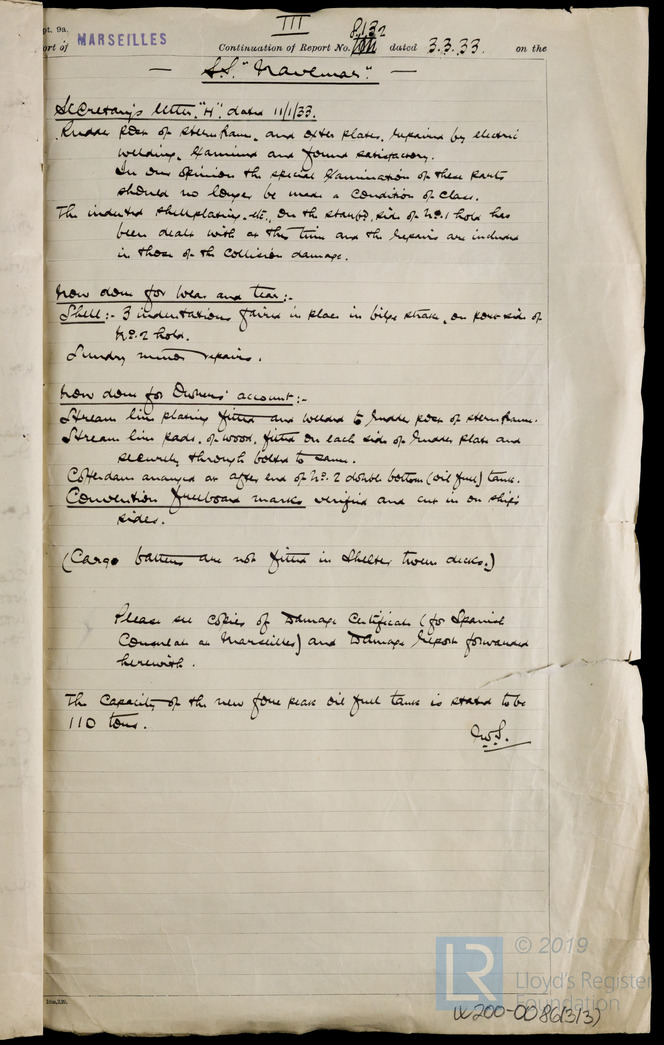 III
pt. 9a.
ort of MARSEILLES Continuation of Report No. 8132 dated 3.3.33. on the
S.S. "Navemar".
Secretary's letter "H", dated 11/1/33.
Rudder post of sternframe, and oxter plates, repaired by electric
welding. Examined and found satisfactory.
In our opinion the special examination of these parts
should no longer be made a condition of class.
The indented shellplating, etc, on the starbd. side of No. 1 hold has
been dealt with at this time and the repairs are included
in those of the collision damage.
Now done for wear and tear:-
Shell:- 3 indentations faired in place in bilge strake, on port side of
No. 2 hold.
Sundry minor repairs.
Now done for Owners' account:-
Stream line plating fitted and welded to rudder post of sternframe.
Stream line pads, of wood, fitted on each side of rudder plate and
securely through bolted to same.
Cofferdam arranged at after end of No. 2 double bottom (oil fuel) tank.
Convention freeboard marks verified and cut in on ship's
sides.
(Cargo battens are not fitted in shelter tween decks.)
Please see copies of Damage Certificate (for Spanish
Consulate at Marseilles) and Damage Report forwarded
herewith.
The capacity of the new fore peak oil fuel tank is stated to be
110 tons.
© 2019
LR
Lloyd's Register
Foundation
W200-0086(3/3)